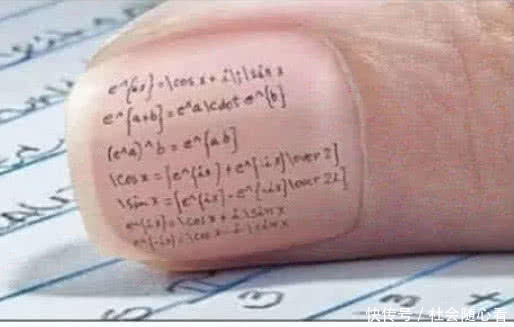 e^{ix}=\cos x + i\;\sin x
e^{a+b}=e^a\cdot e^{b}
(e^a)^b=e^{ab}
\cos x=[e^{ix}+e^{-ix}\over 2]
\sin x=[e^{ix}-e^{-ix}\over 2i]
e^{ix}=\cos x+i \sin x
e^{-ix}=\cos x-i \sin x
3
快传号/社会随心看